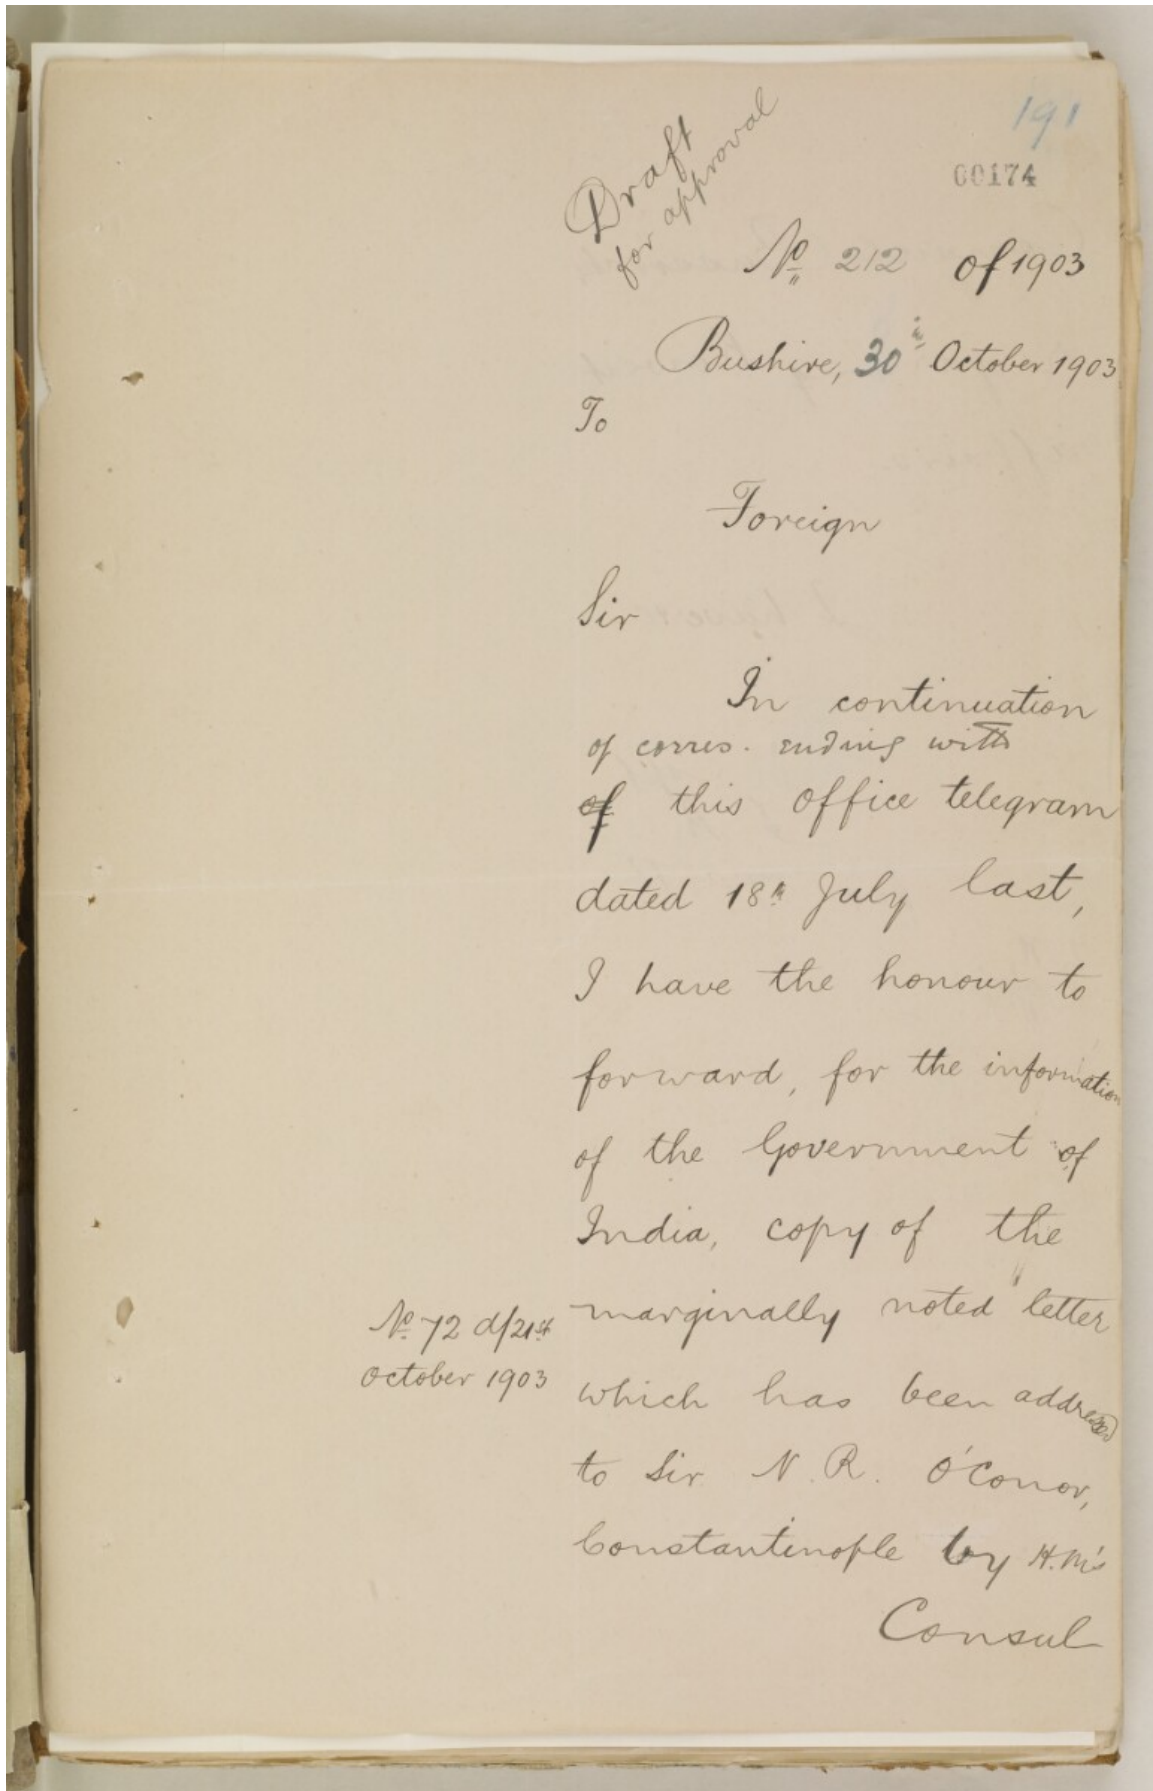 191
00174
Draft
for approval
No 212 of 1903
Bushire, 30th October 1903
To
Foreign
Sir
In continuation
of corres. ending with
of this office telegram
dated 18th July last,
I have the honour to
forward, for the information
of the Government of
India, copy of the
marginally noted letter
No 72 d/21st
October 1903
which has been addressed
to Sir N. R. O'Conor,
Constantinople by H.M's
Consul